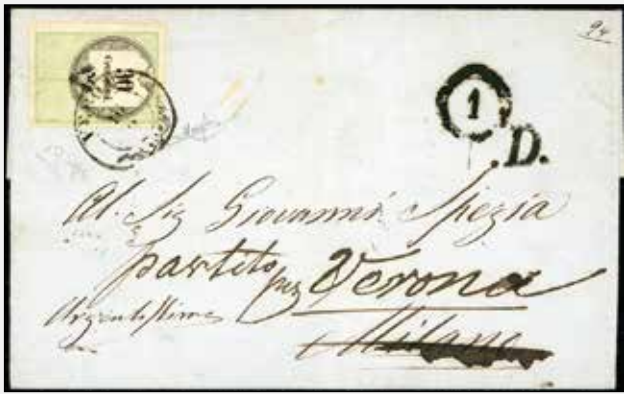 94
30
1
.D.
Al. Sig Giovanni Spezia
partito per Verona
Urgentissima
Milano